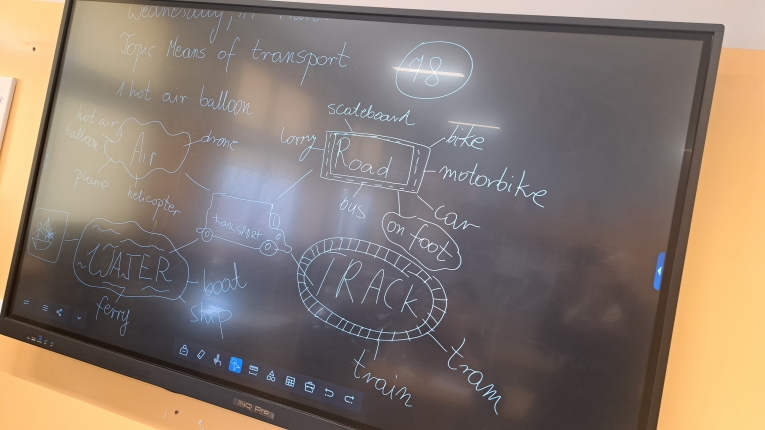 Wednesday,
Topic Means of transport
18
1 hot air balloon
scateboard
hot air
balloon
Air
drone
lorry
Road
bike
motorbike
plane
helicopter
bus
car
transport
on foot
WATER
boat
TRACK
ferry
ship
train
tram